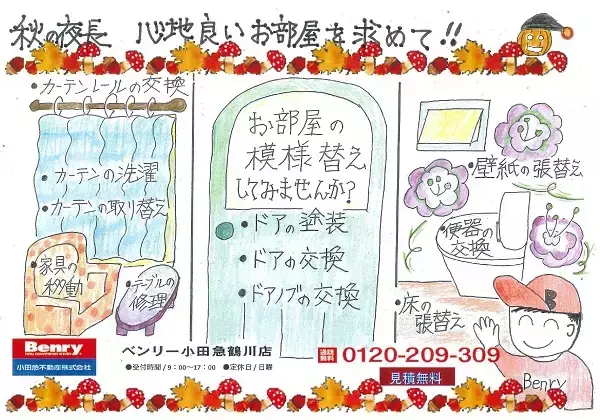 秋の夜長 心地良いお部屋を求めて!!
・カーテンレールの交換
・カーテンの洗濯
・カーテンの取り替え
・家具の
移動
・テーブルの
修理
お部屋の
模様替え
してみませんか?
・ドアの塗装
・ドアの交換
・ドアノブの交換
・壁紙の張替え
・便器の
交換
・床の
張替え
Benry
Benry
小田急不動産株式会社
ベンリー小田急鶴川店
●受付時間/9:00〜17:00 ●定休日/日曜
通話無料 0120-209-309
見積無料